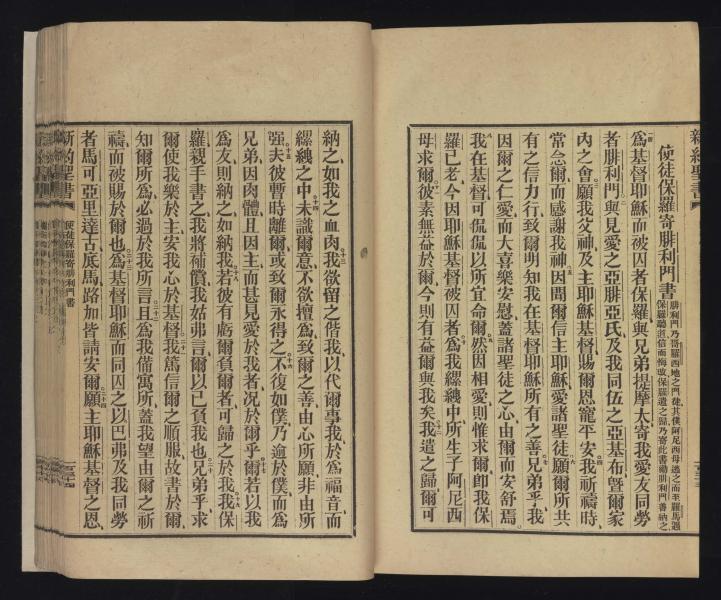 新約聖書
使徒保羅寄腓利門書
腓利門乃哥羅西地之門徒其僕阿尼西母逃之而至羅馬遇
保羅聽道信而悔改保羅遣之歸乃寄此書勸腓利門善納之
為基督耶穌而被囚者保羅與兄弟提摩太寄我愛友同勞
者腓利門與見愛之亞腓亞氏及我同伍之亞基布曁爾家
內之會願我父神及主耶穌基督賜爾恩寵平安我祈禱時
常念爾而感謝我神因聞爾信主耶穌愛諸聖徒願爾所共
有之信力行致爾明知我在基督耶穌所有之善兄弟乎我
因爾之仁愛而大喜樂安慰蓋諸聖徒之心由爾而安舒焉
我在基督可侃侃以所宜命爾然因相愛則惟求爾即我保
羅已老今因耶穌基督被囚者為我縲絏中所生子阿尼西
母求爾彼素無益於爾今則有益爾與我矣我遣之歸爾可
納之如我之血肉我欲留之偕我以代爾事我於為福音而
縲絏之中未識爾意不欲擅為致爾之善由心所願非由所
强夫彼暫時離爾或致爾永得之不復如僕乃逾於僕而為
兄弟因肉體且因主而甚見愛於我者况於爾乎爾若以我
為友則納之如納我若彼有虧爾負爾者可歸之於我我保
羅親手書之我將補償我姑弗言爾以己負我也兄弟乎求
爾使我樂於主安我心於基督我篤信爾之順服故書於爾
知爾所為必過於我所言且為我備寓所蓋我望由爾之祈
禱而被賜於爾也為基督耶穌而同囚之以巴弗及我同勞
者馬可亞里達古底馬路加皆請安爾願主耶穌基督之恩
新約聖書
使徒保羅寄腓利門書